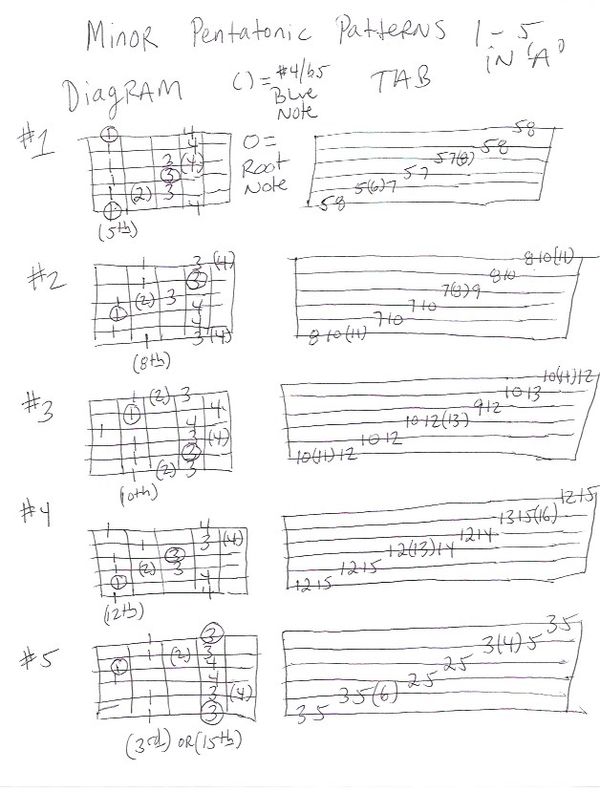 Minor Pentatonic Patterns 1 - 5
in 'A'
Diagram
( ) = #4/b5
Blue
Note
TAB
#1
1 4
1 4
1 3 (4)
1 3
1 (2) 3
1 4
(5th)
O =
Root
Note
5 8
5 8
5 7 (8)
5 7
5 (6) 7
5 8
#2
1 3 (4)
1 3
(2) 3
1 4
1 4
1 3 (4)
(8th)
8 10 (11)
8 10
7 (8) 9
7 10
7 10
8 10 (11)
#3
1 (2) 3
1 4
1 4
1 3 (4)
1 3
1 (2) 3
(10th)
10 (11) 12
10 13
9 12
10 12 (13)
10 12
10 (11) 12
#4
1 4
1 3 (4)
1 3
1 (2) 3
1 4
1 4
(12th)
12 15
13 15 (16)
12 14
12 (13) 14
12 15
12 15
#5
1 3
1 (2) 3
1 4
1 4
1 3 (4)
1 3
(3rd) OR (15th)
3 5
3 (4) 5
2 5
2 5
3 5 (6)
3 5